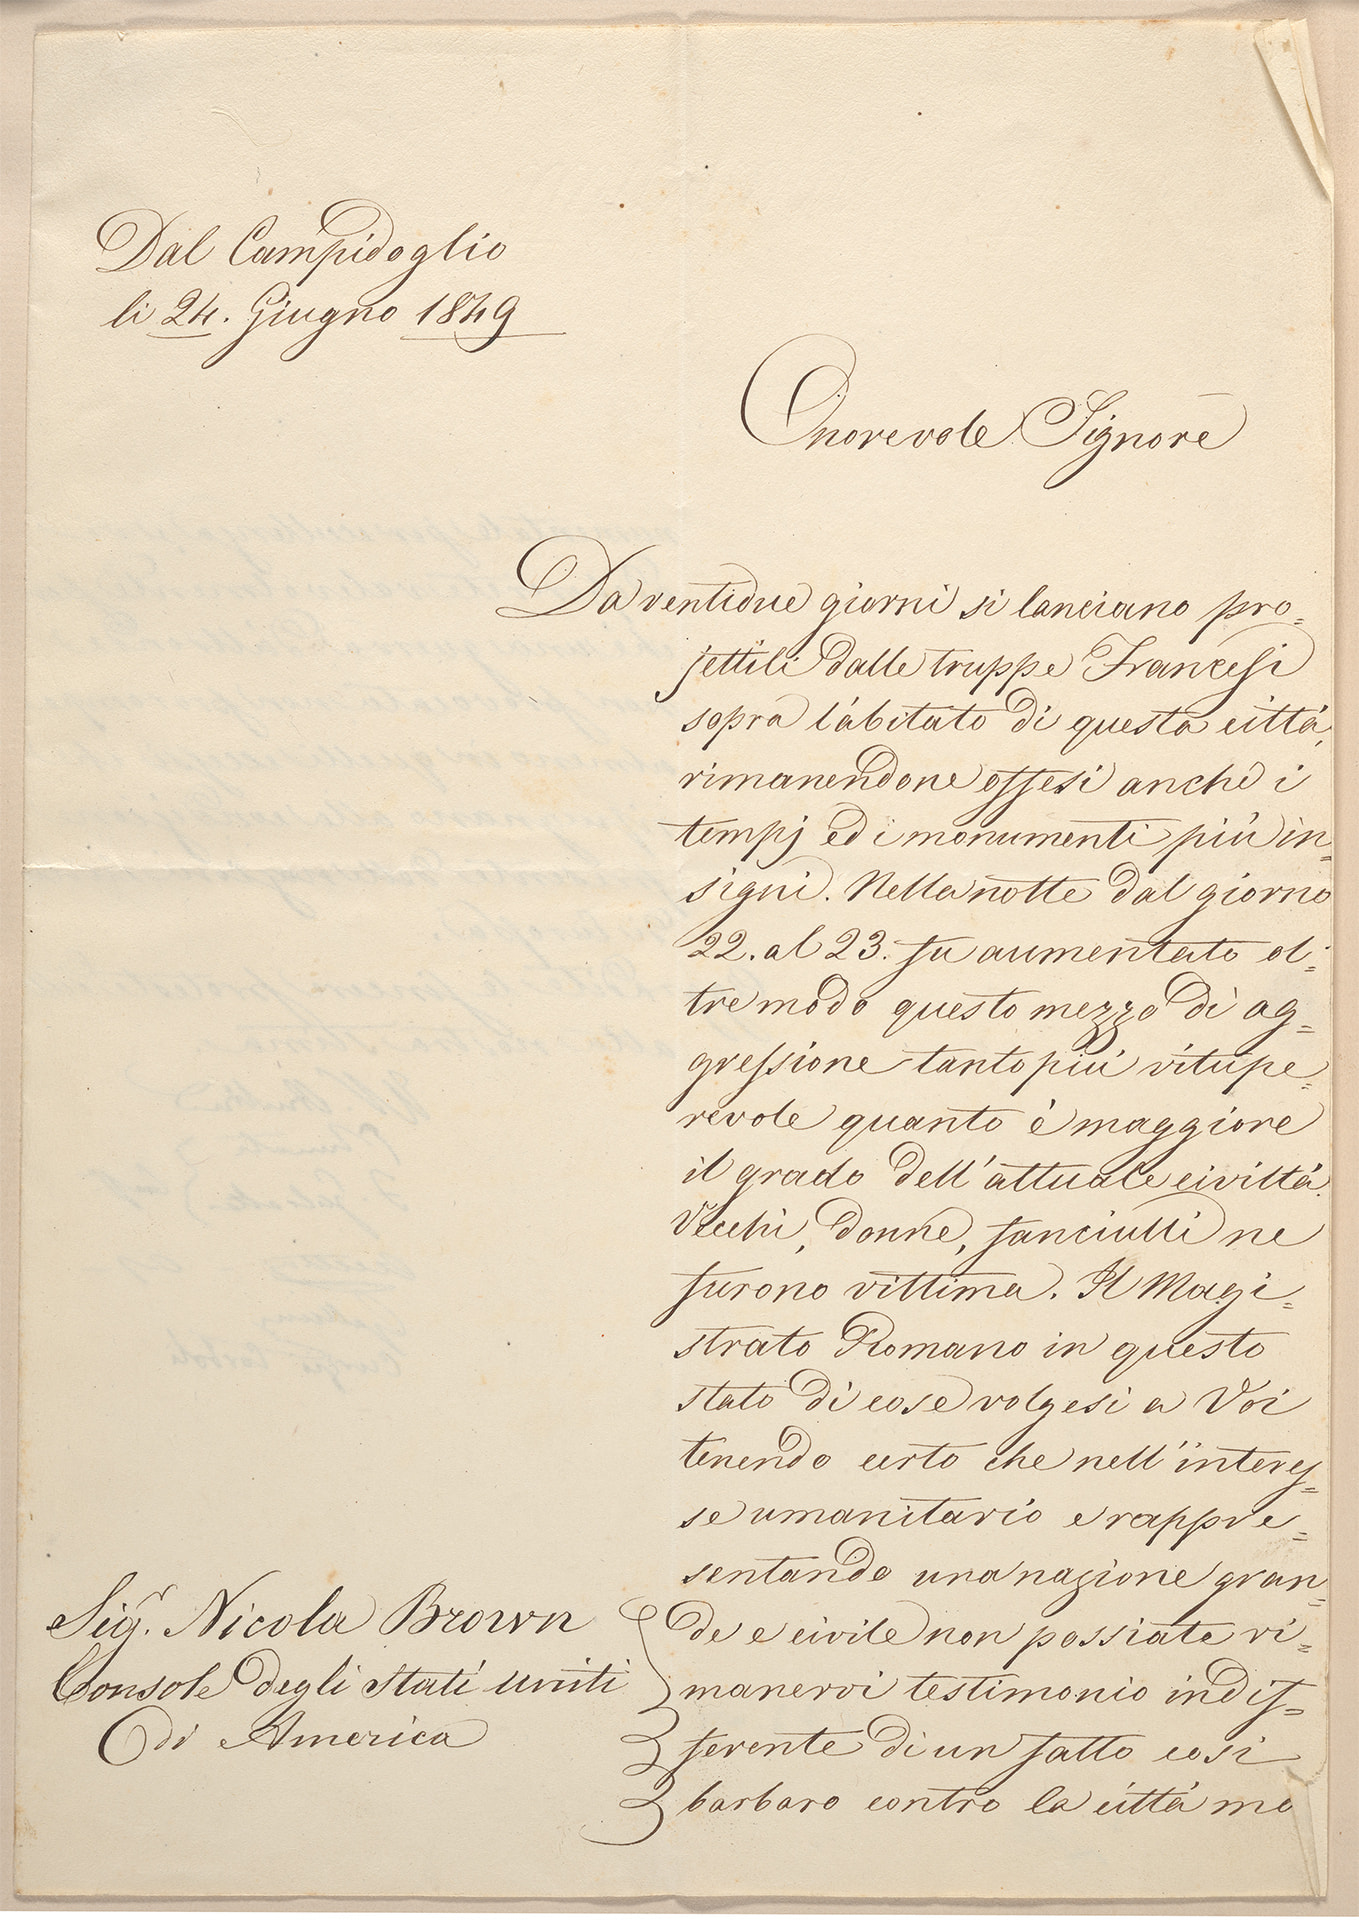 Dal Campidoglio
li 24. Giugno 1849
Onorevole Signore
Da ventidue giorni si lanciano pro=
jettili dalle truppe Francesi
sopra l'abitato di questa città,
rimanendone offesi anche i
tempj ed i monumenti più in=
signi. Nella notte dal giorno
22. al 23. fu aumentato ol=
tre modo questo mezzo di ag=
gressione tanto più vitupe=
revole quanto è maggiore
il grado dell'attuale civiltà.
Vecchi, donne, fanciulli ne
furono vittima. Il Magi=
strato Romano in questo
stato di cose volgesi a Voi
tenendo certo che nell'interes=
se umanitario e rappre=
sentando una nazione gran=
de e civile non possiate ri=
manervi testimonio indif=
ferente di un fatto così
barbaro contro la città mo
Sig.r Nicola Brown
Console degli Stati Uniti
di America